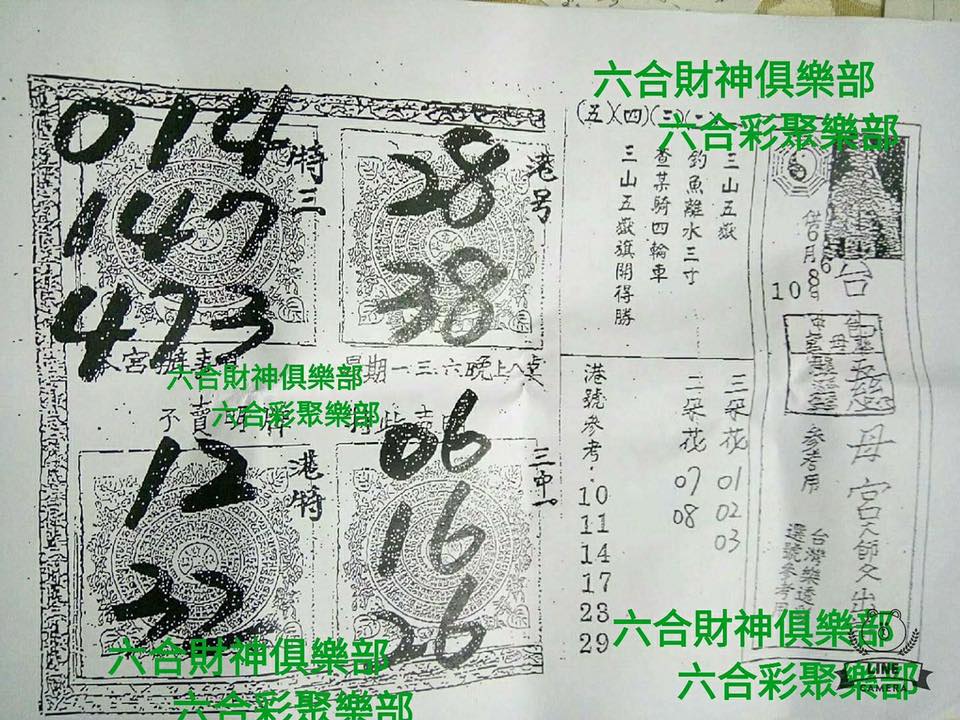 六合財神俱樂部
六合彩聚樂部
014
147
473
特三
28
38
港号
本宮
星期一三.六晚上八桌
不賣明牌
六合財神俱樂部
六合彩聚樂部
12
32
港特
06
16
26
三中一
(五)(四)(三)(二)
三山五嶽
釣魚離水三寸
查某騎四輪車
三山五嶽旗開得勝
三朵花 01 02 03
二朵花 07 08
港號參考:
10
11
14
17
23
29
108
6
台
母宮天師父出
參考用
台灣樂透
選號參考用
六合財神俱樂部
六合彩聚樂部
六合財神俱樂部
六合彩聚樂部
LINE
CAMERA